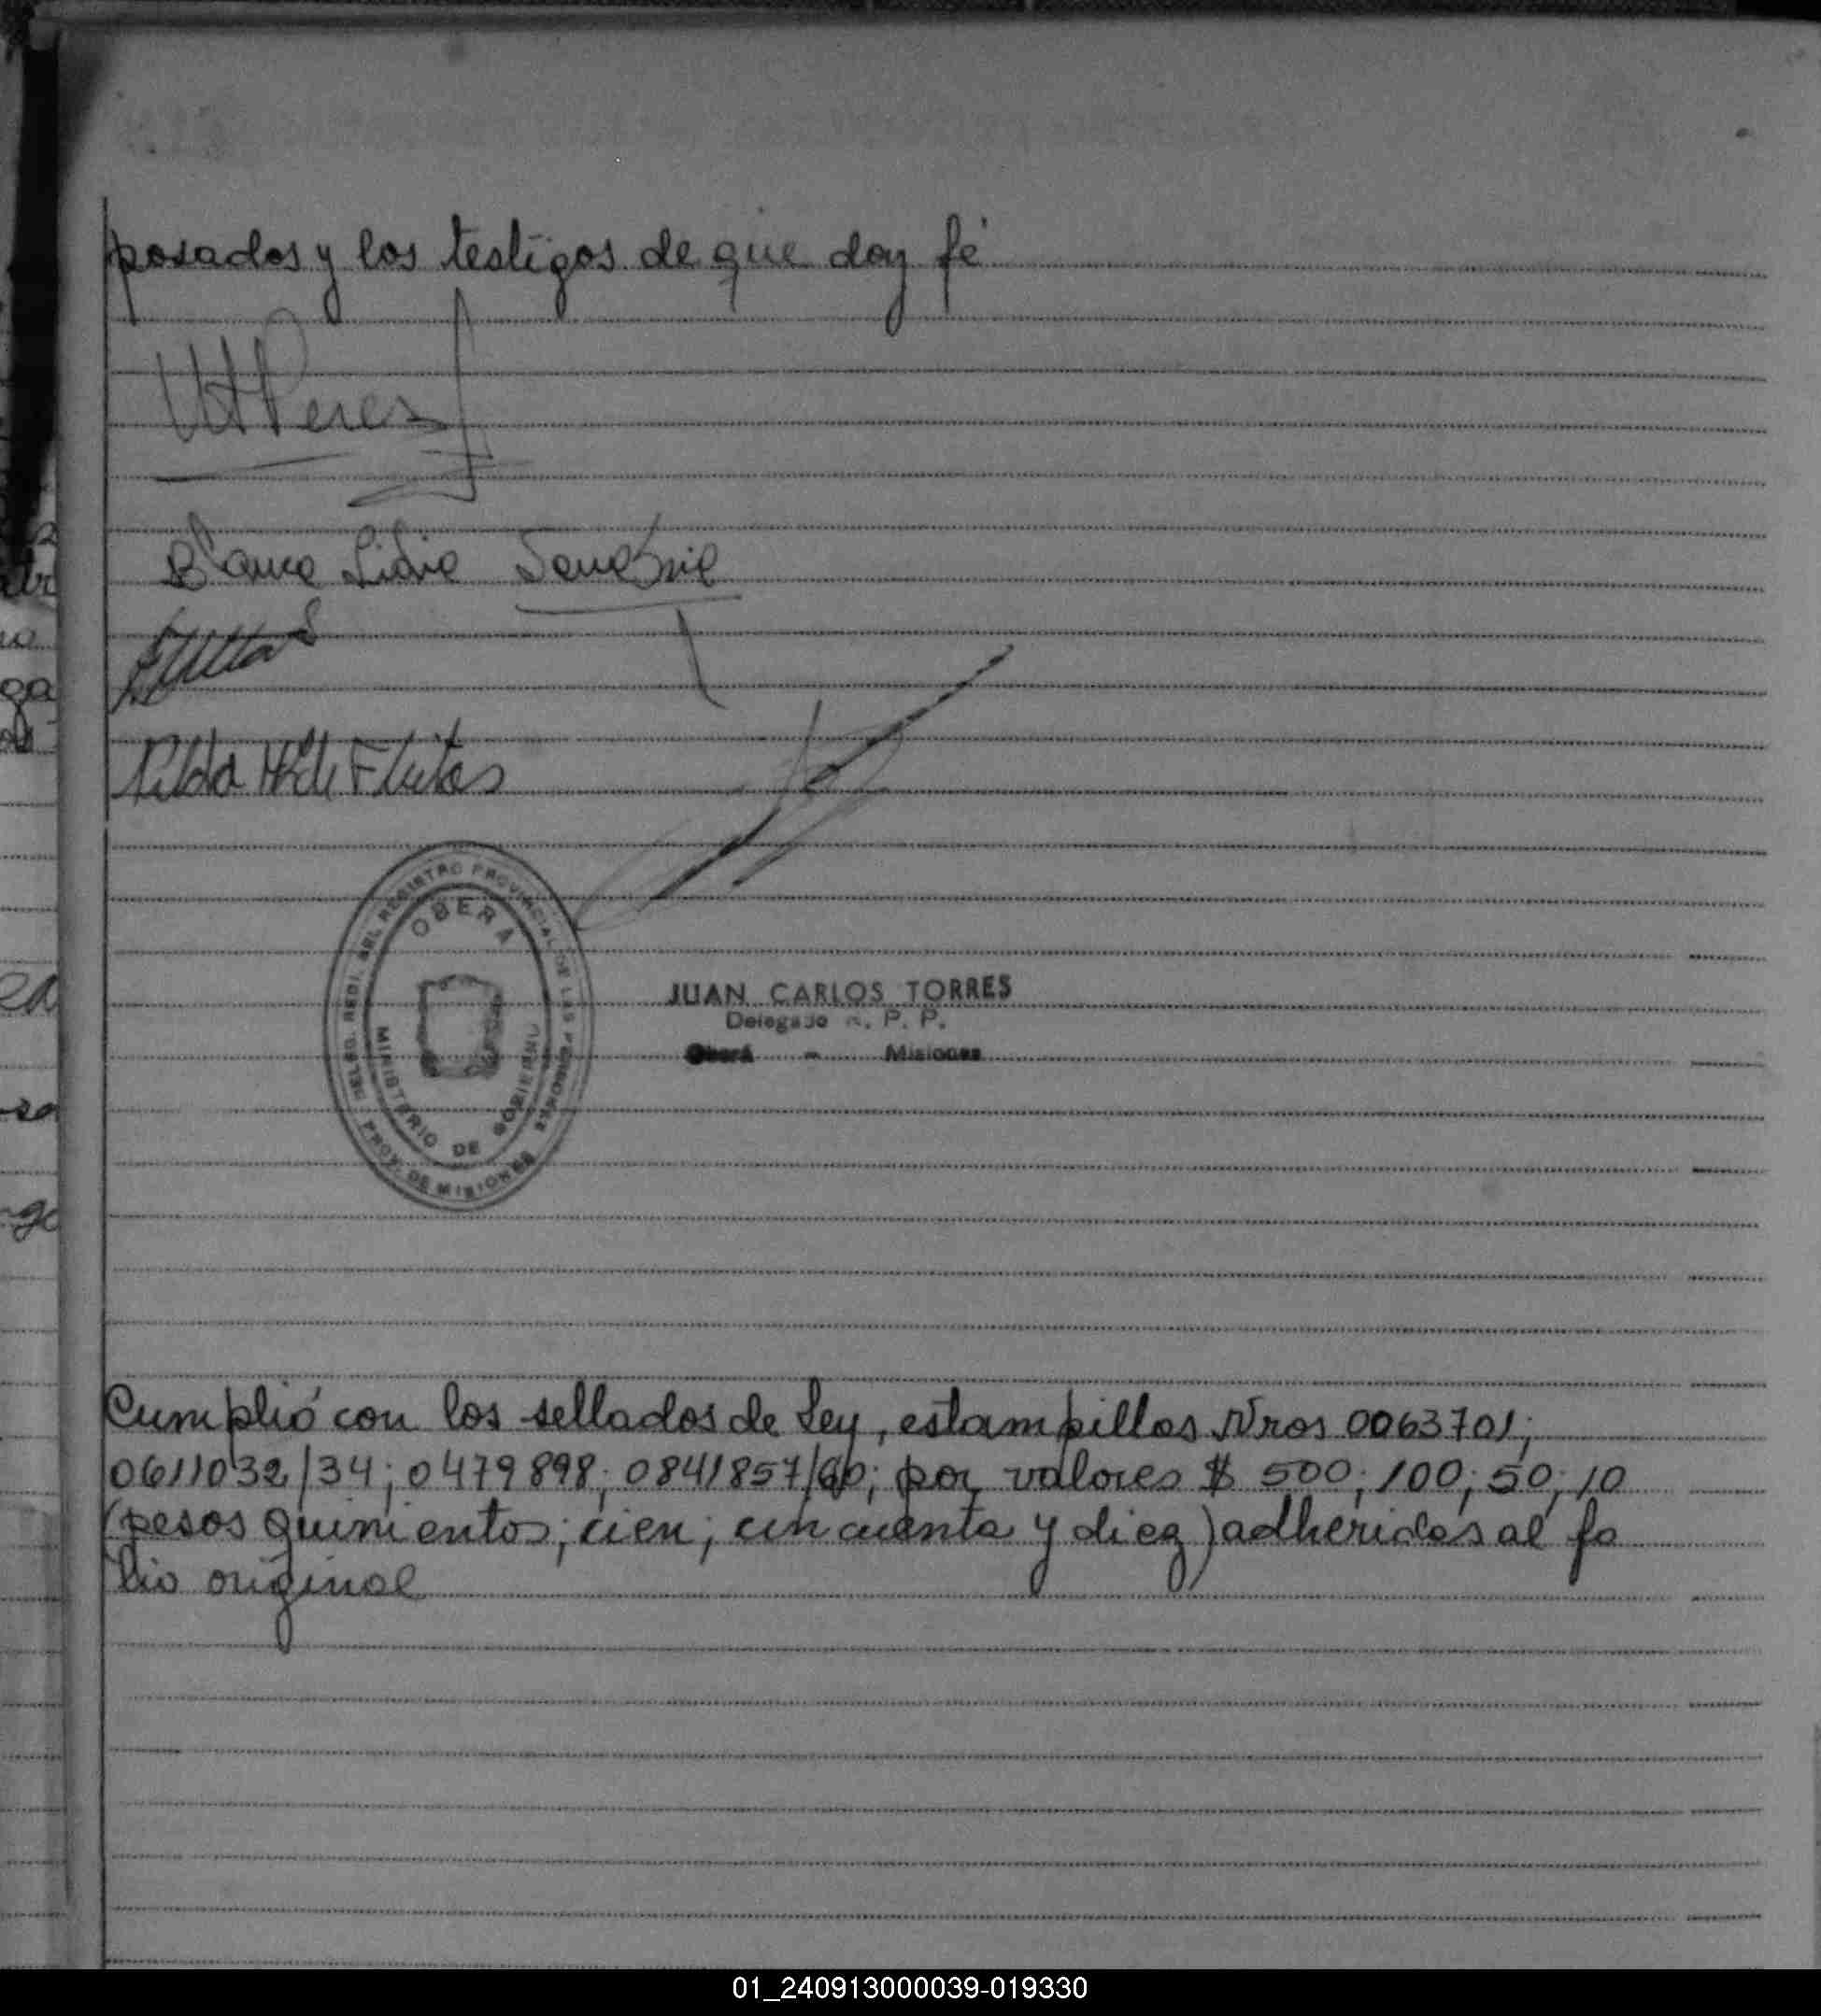 posados y los testigos de que doy fé
Perez
Blanca Lidia
Hilda
OBERÁ
MINISTERIO DE GOBIERNO
DELEG. REGI. DEL REGISTRO PROVINCIAL DE LAS PERSONAS
PROV. DE MISIONES
JUAN CARLOS TORRES
Delegado R. P. P.
Oberá - Misiones
Cumplió con los sellados de Ley, estampillas Nros 0063701;
0611032/34; 0479898; 0841857/60; por valores $ 500; 100; 50; 10
(pesos quinientos; cien; cincuenta y diez) adheridas al fo
lio original
01_240913000039-019330